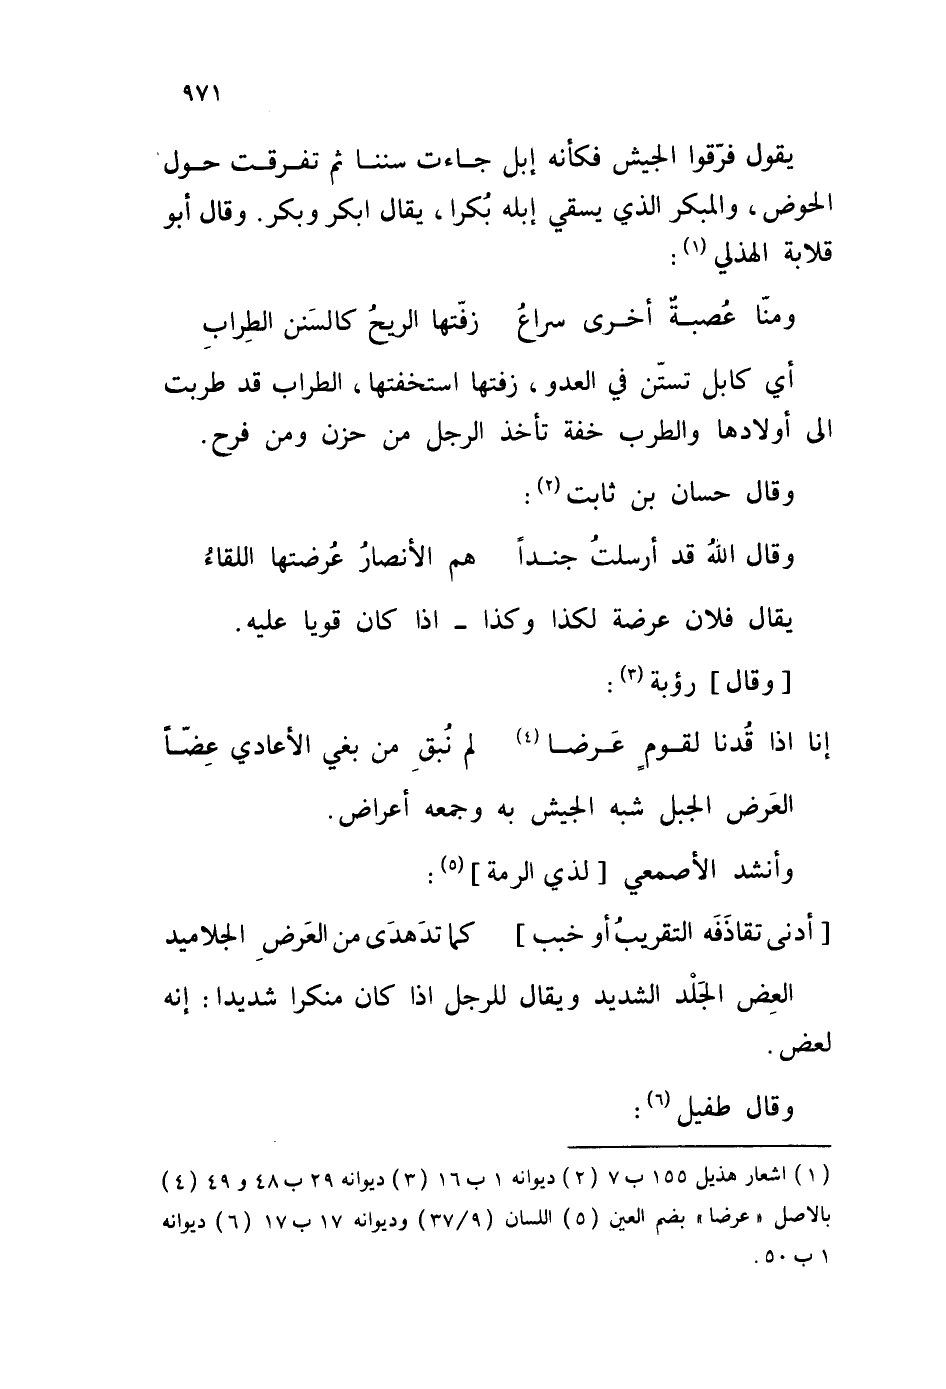 ٩٧١
يقول فرّقوا الجيش فكأنه إبل جـاءت سننـا ثم تفـرقـت حـول
الحوض، والمبكر الذي يسقي إبله بُكرا، يقال ابكر وبكر. وقال أبو
قلابة الهذلي (١) :
ومنّا عُصبـةٌ أخـرى سراعُ زفّتها الريحُ كالسَنن الطِرابِ
أي كابل تستّن في العدو، زفتها استخفتها، الطراب قد طربت
الى أولادها والطرب خفة تأخذ الرجل من حزن ومن فرح.
وقال حسان بن ثابت (٢) :
وقال اللهُ قد أرسلتُ جنـداً هم الأنصارُ عُرضتها اللقاءُ
يقال فلان عرضة لكذا وكذا - اذا كان قويا عليه.
[ وقال ] رؤبة (٣) :
إنا اذا قُدنا لقـومٍ عَـرضـا (٤) لم نُبقِ من بغي الأعادي عِضّـاً
العَرض الجبل شبه الجيش به وجمعه أعراض.
وأنشد الأصمعي [ لذي الرمة ] (٥) :
[ أدنى تقاذَفَه التقريبُ أو خبب ] كما تدَهدَى من العَرضِ الجلاميد
العِض الجَلْد الشديد ويقال للرجل اذا كان منكرا شديدا : إنه
لعض.
وقال طفيل (٦) :
(١) اشعار هذيل ١٥٥ ب ٧ (٢) ديوانه ١ ب ١٦ (٣) ديوانه ٢٩ ب ٤٨ و ٤٩ (٤)
بالاصل « عرضا » بضم العين (٥) اللسان (٣٧/٩) وديوانه ١٧ ب ١٧ (٦) ديوانه
١ ب ٥٠.